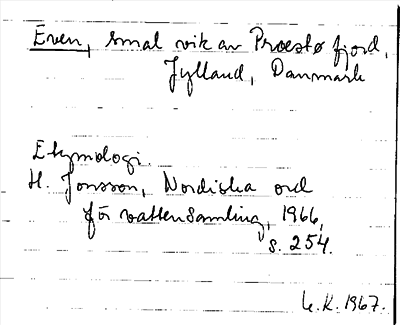 Even, smal vik av Præstø fjord,
Jylland, Danmark
Etymologi.
H. Jonsson, Nordiska ord
för vattensamling, 1966,
s. 254.
L.K. 1967.